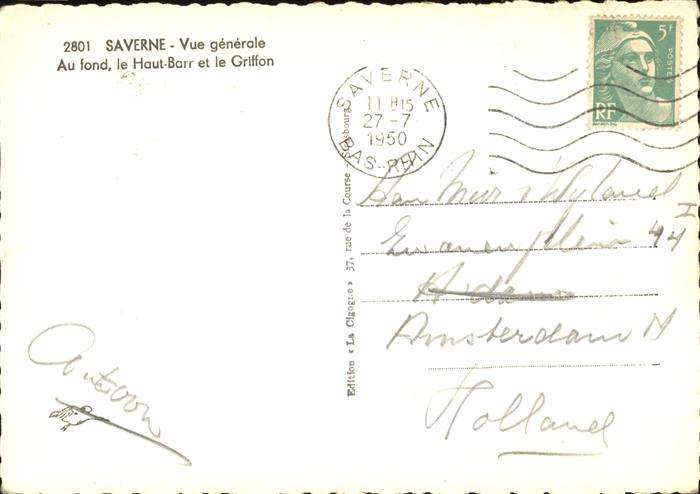 2801 SAVERNE - Vue générale
Au fond, le Haut-Barr et le Griffon
SAVERNE
11 H15
27-7
1950
BAS-RHIN
5F
POSTES
RF
Edition « La Cigogne » 37, rue de la Course - Strasbourg
Zwanenplein 44 I
A'dam
Amsterdam N
Holland